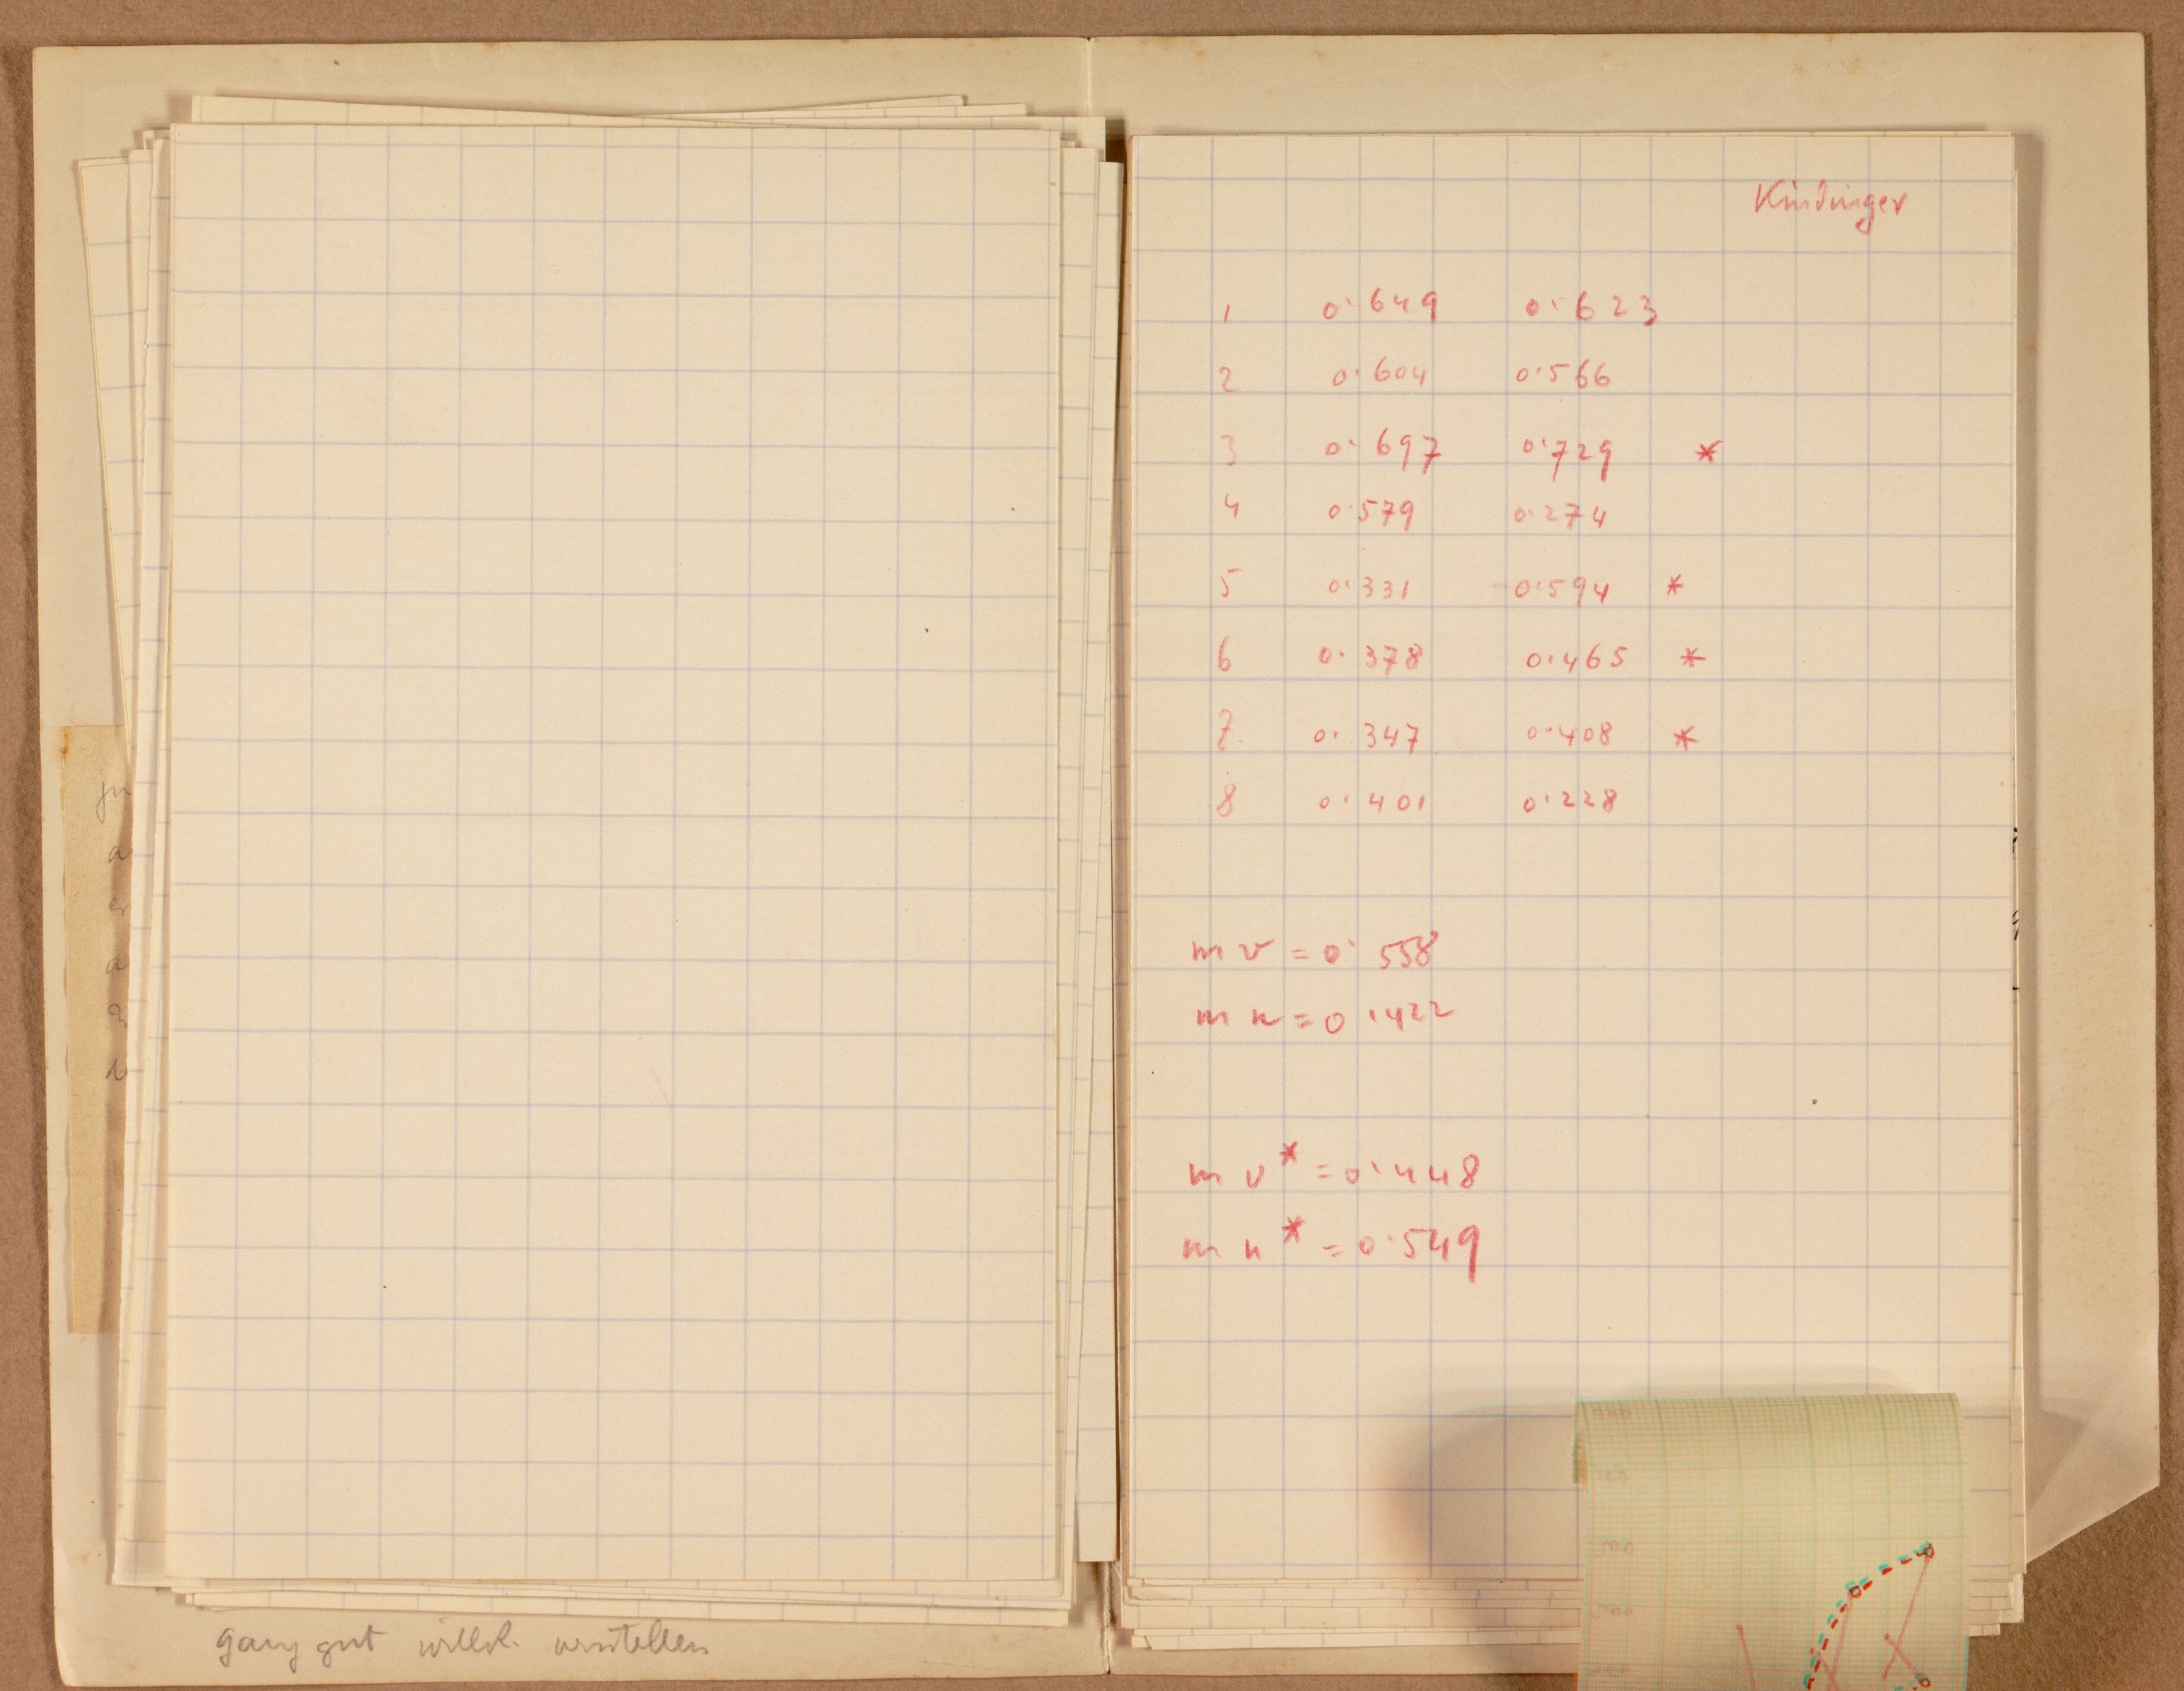 Kindinger
1 0·649 0·623
2 0·604 0·566
3 0·697 0·729 *
4 0·579 0·274
5 0·331 0·594 *
6 0·378 0·465 *
7 0·347 0·408 *
8 0·401 0·228
m v = 0·558
m n = 0·422
m v* = 0·448
m n* = 0·549
ganz gut willk. vorstellen